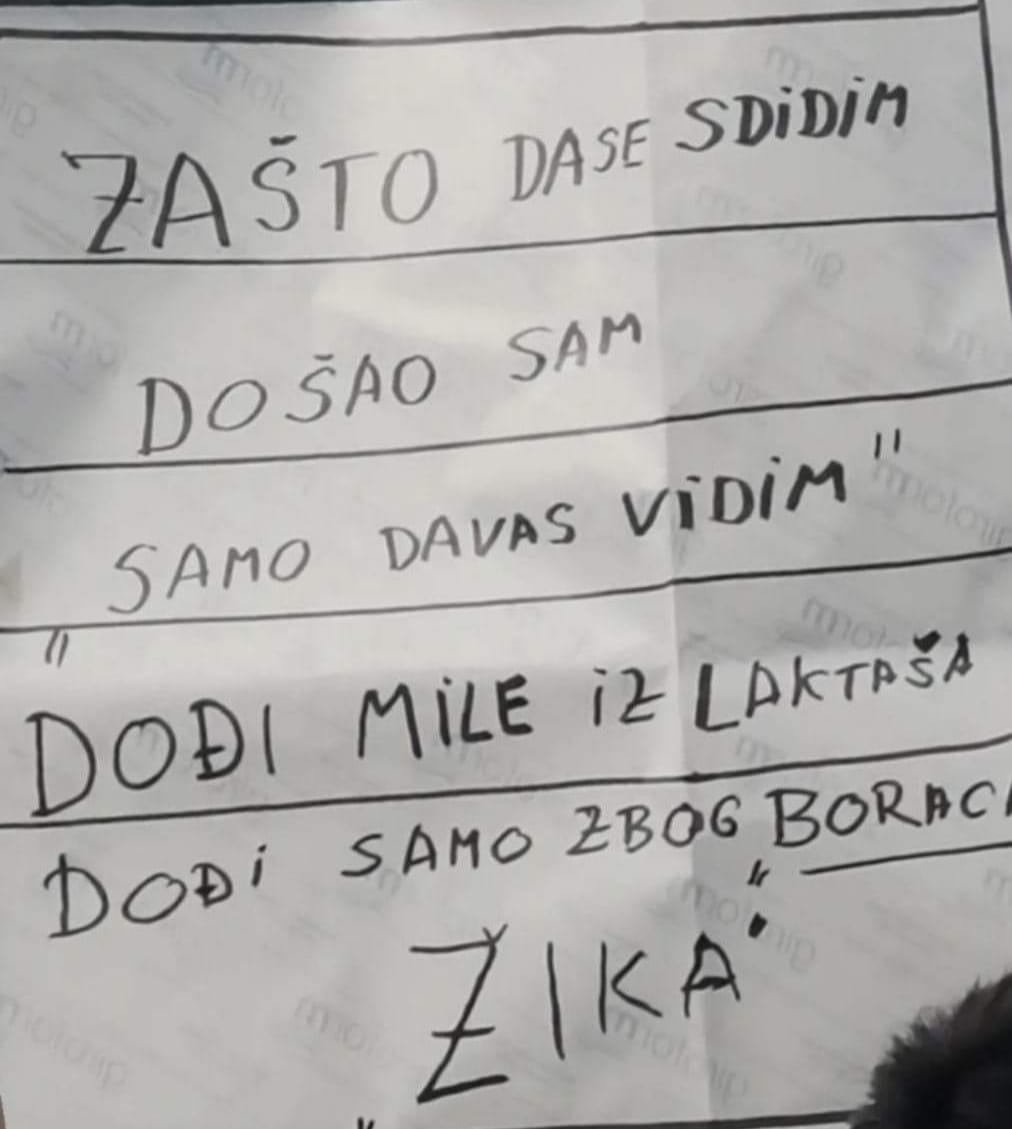 ZAŠTO DASE SDIDIM
DOŠAO SAM
SAMO DAVAS VIDIM"
"DOĐI MILE IZ LAKTAŠA
DOĐI SAMO ZBOG BORAC
ŽIKA"